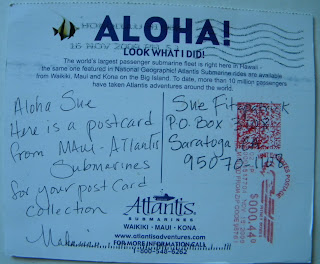 ALOHA!
HONOLULU
16 NOV 2009 PM
LOOK WHAT I DID!
The world's largest passenger submarine fleet is right here in Hawaii -
the same one featured in National Geographic! Atlantis Submarine rides are available
from Waikiki, Maui and Kona on the Big Island. To date, more than 10 million passengers
have taken Atlantis adventures around the world.
Aloha Sue
Here is a postcard
from MAUI-Atlantis
Submarines
for your postcard
collection
Sue
P.O. Box
Saratoga
95070-
Atlantis
SUBMARINES
WAIKIKI · MAUI · KONA
www.atlantisadventures.com
FOR MORE INFORMATION CALL
1-800-548-6262